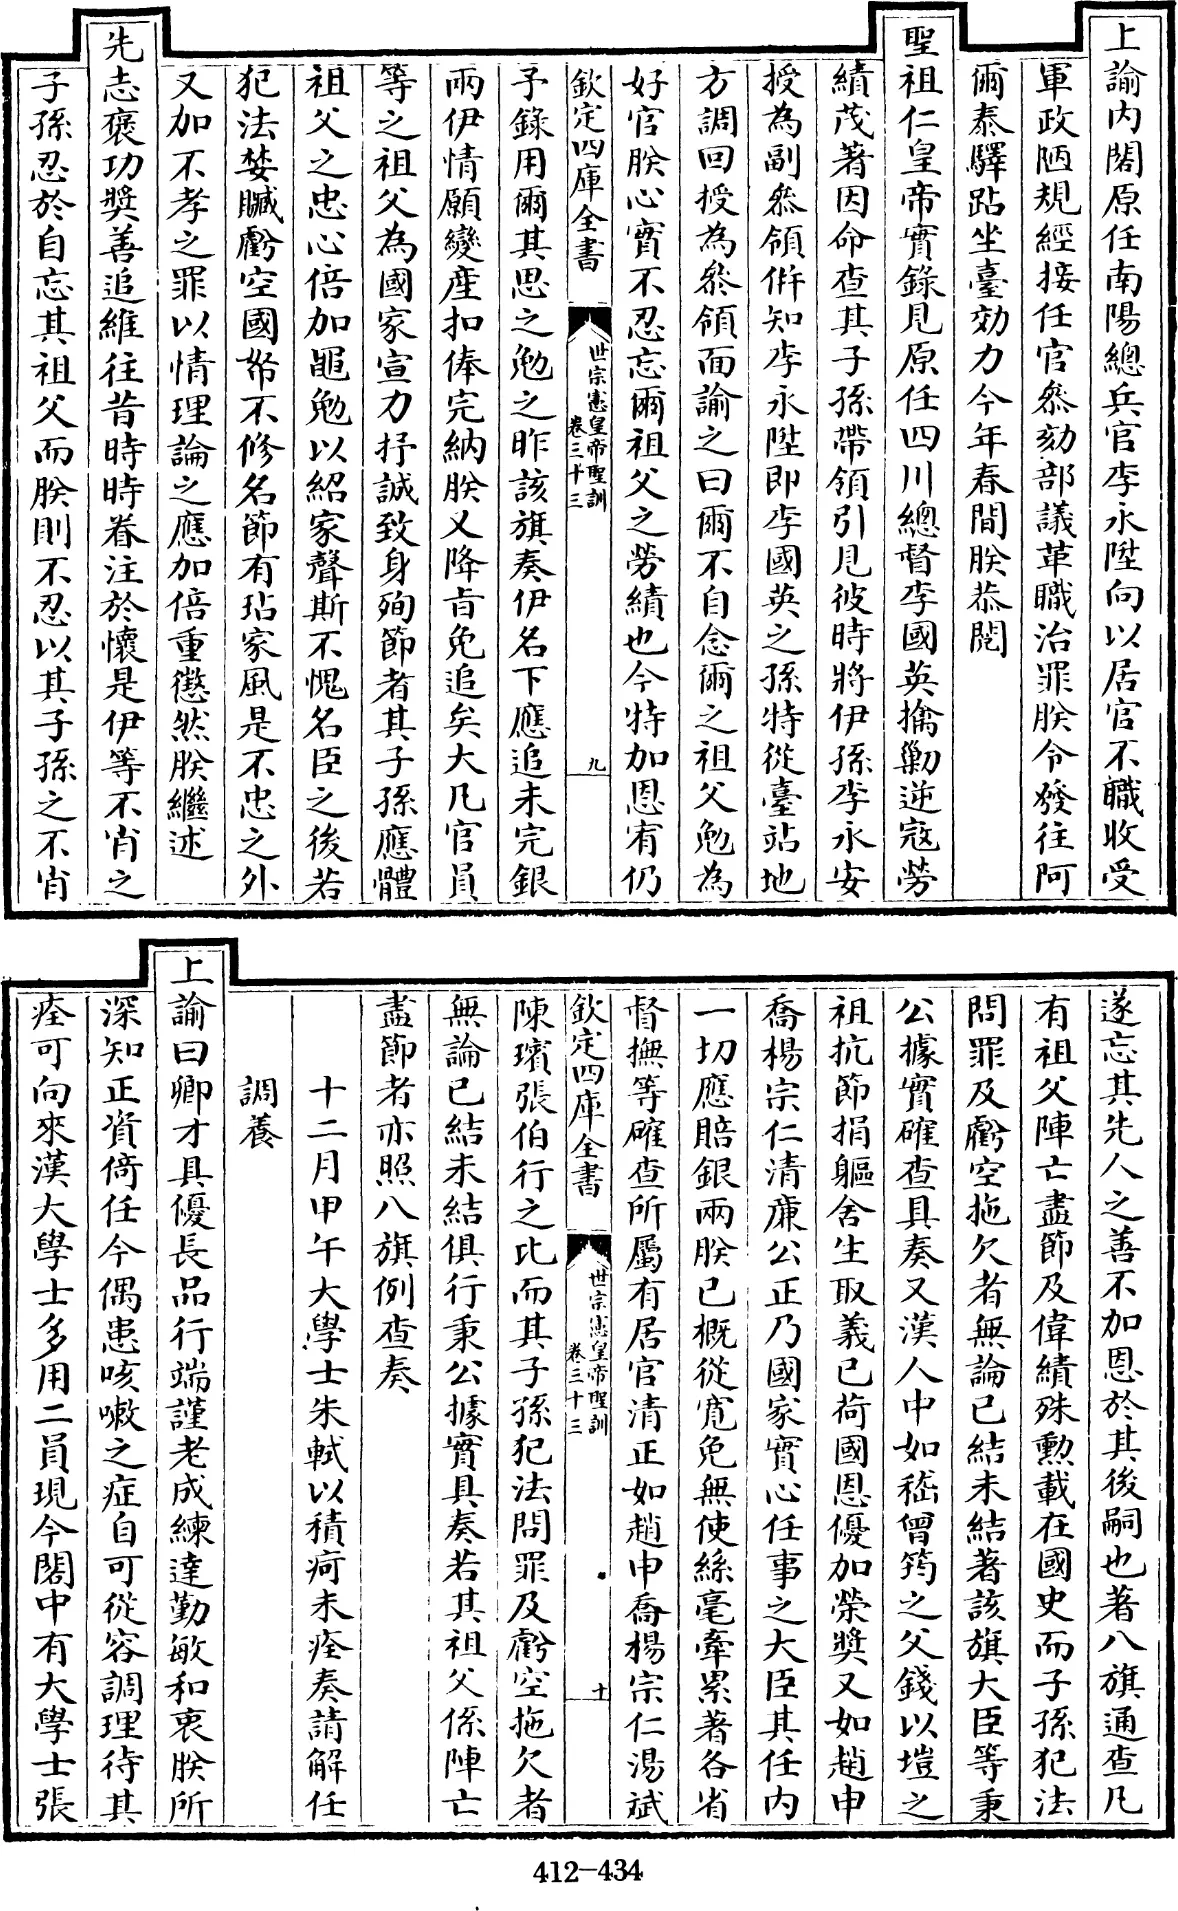 上諭内閣原任南陽總兵官李永陞向以居官不職收受
軍政陋規經接任官叅劾部議革職治罪朕令發往阿
爾泰驛跕坐臺効力今年春間朕恭閱
聖祖仁皇帝實錄見原任四川總督李國英擒勦逆寇勞
績茂著因命查其子孫帶領引見彼時將伊孫李永安
授為副叅領併知李永陞即李國英之孫特從臺站地
方調回授為叅領面諭之曰爾不自念爾之祖父勉為
好官朕心實不忍忘爾祖父之勞績也今特加恩宥仍
欽定四庫全書
世宗憲皇帝聖訓
卷三十三
九
予錄用爾其思之勉之昨該旗奏伊名下應追未完銀
兩伊情願變產扣俸完納朕又降旨免追矣大凡官員
等之祖父為國家宣力抒誠致身殉節者其子孫應體
祖父之忠心倍加黽勉以紹家聲斯不愧名臣之後若
犯法婪贓虧空國帑不修名節有玷家風是不忠之外
又加不孝之罪以情理論之應加倍重懲然朕繼述
先志褒功獎善追維往昔時時眷注於懷是伊等不肖之
子孫忍於自忘其祖父而朕則不忍以其子孫之不肖
遂忘其先人之善不加恩於其後嗣也著八旗通查凡
有祖父陣亡盡節及偉績殊勲載在國史而子孫犯法
問罪及虧空拖欠者無論已結未結著該旗大臣等秉
公據實確查具奏又漢人中如嵇曾筠之父錢以塏之
祖抗節捐軀舍生取義已荷國恩優加榮獎又如趙申
喬楊宗仁清廉公正乃國家實心任事之大臣其任内
一切應賠銀兩朕已概從寛免無使絲毫牽累著各省
督撫等確查所屬有居官清正如趙申喬楊宗仁湯斌
欽定四庫全書
世宗憲皇帝聖訓
卷三十三
十
陳璸張伯行之比而其子孫犯法問罪及虧空拖欠者
無論已結未結俱行秉公據實具奏若其祖父係陣亡
盡節者亦照八旗例查奏
十二月甲午大學士朱軾以積疴未痊奏請解任
調養
上諭曰卿才具優長品行端謹老成練達勤敏和衷朕所
深知正資倚任今偶患咳嗽之症自可從容調理待其
痊可向來漢大學士多用二員現今閣中有大學士張
412-434